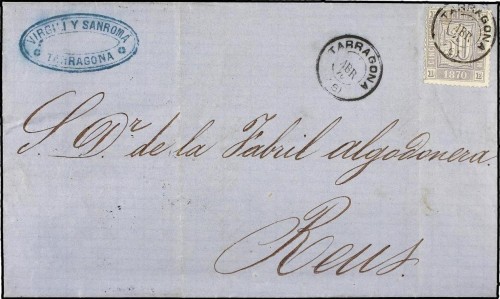 VIRGILI Y SANROMÁ
TARRAGONA
TARRAGONA
ABR
TARRAGONA
ABR
1870
S. Dr. de la Fabril algodonera.
Reus.